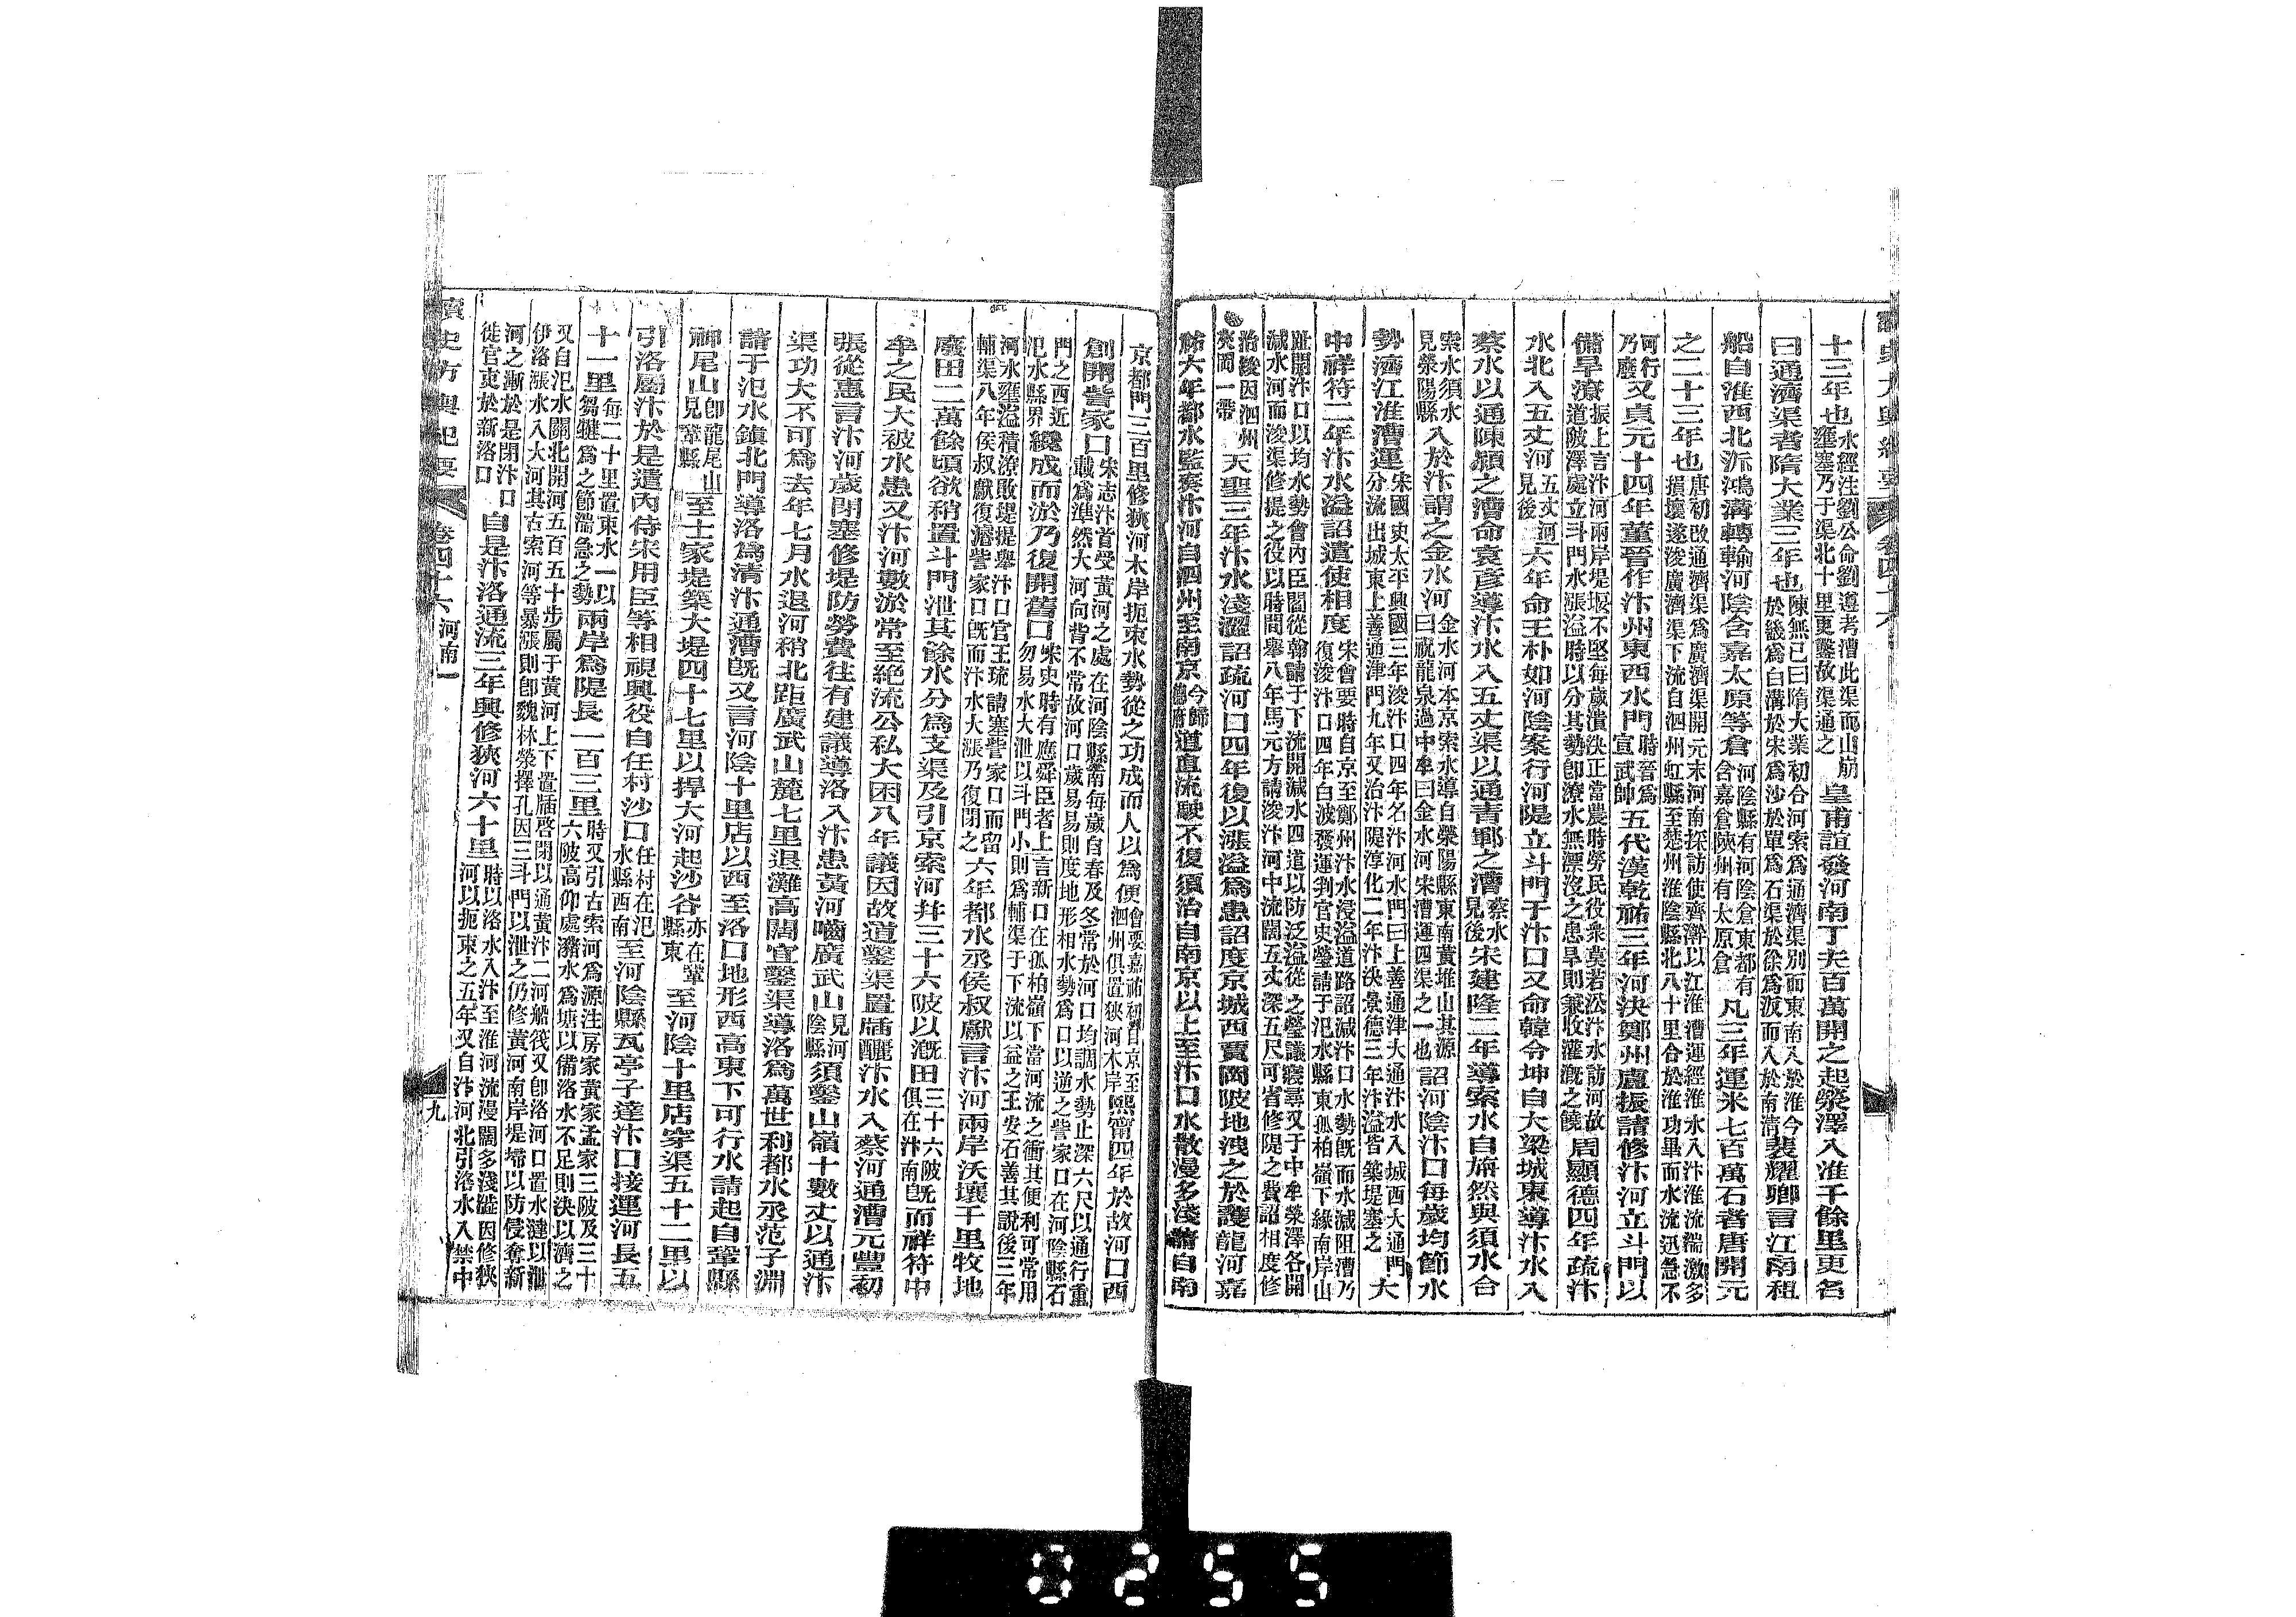 十三年也水經注劉公命劉遵考漕此渠而山崩壅塞乃于渠北十里更鑿故渠通之皇甫誼發河南丁夫百萬開之起滎澤入淮千餘里更名
曰通濟渠者隋大業三年也陳無已曰隋大業初合河索爲通濟渠別而東南入於淮今於畿爲白溝於宋爲沙於單爲石渠於徐爲汳而入於南清裴耀卿言江南租
船自淮西北泝鴻溝轉輸河陰含嘉太原等倉河陰縣有河陰倉東都有含嘉倉陝州有太原倉凡三年運米七百萬石者唐開元
之二十三年也唐初改通濟渠爲廣濟渠開元末河南採訪使齊澣以江淮漕運經淮水入汴淮流湍激多損壞遂浚廣濟渠下流自泗州虹縣至楚州淮陰縣北八十里合於淮功畢而水流迅急不
可行乃廢又貞元十四年董晉作汴州東西水門時晉爲宣武帥五代漢乾祐三年河決鄭州盧振請修汴河立斗門以
備旱潦振上言汴河兩岸堤堰不堅每歲潰決正當農時勞民役衆莫若沿汴水訪河故道陂澤處立斗門水漲溢時以分其勢卽潦水無漂沒之患旱則兼收灌漑之饒周顯德四年疏汴
水北入五丈河五丈河見後六年命王朴如河陰案行河隄立斗門于汴口又命韓令坤自大梁城東導汴水入
蔡水以通陳潁之漕命袁彥導汴水入五丈渠以通青鄆之漕蔡水見後宋建隆二年導索水自旃然與須水合
索水須水見滎陽縣入於汴謂之金水河金水河本京索水導自滎陽縣東南黃堆山其源曰祝龍泉過中牟曰金水河宋漕運四渠之一也詔河陰汴口每歲均節水
勢濟江淮漕運宋國史太平興國三年浚汴口四年名汴河水門曰上善通津大通汴水入城西大通門分流出城東上善通津門九年又治汴隄淳化二年汴決景德三年汴溢皆築堤塞之大
中祥符二年汴水溢詔遣使相度宋會要時自京至鄭州汴水浸溢道路詔減汴口水勢旣而水減阻漕乃復浚汴口四年白波發運判官史瑩請于汜水縣東孤柏嶺下緣南岸山
趾開汴口以均水勢會內臣閻從翰請于下流開減水四道以防泛溢從之瑩議寢尋又于中牟滎澤各開減水河而浚渠修堤之役以時間舉八年馬元方請浚汴河中流闊五丈深五尺可省修隄之費詔相度修
治後因泗州夾岡一帶天聖三年汴水淺澀詔疏河口四年後以漲溢爲患詔度京城西賈岡陂地洩之於護龍河嘉
祐六年都水監奏汴河自泗州至南京今歸德府道直流駛不復須治自南京以上至汴口水散漫多淺請自南
京都門三百里修狹河木岸扼束水勢從之功成而人以爲便會要嘉祐初自京至泗州俱置狹河木岸熙寧四年於故河口西
創開訾家口宋志汴首受黃河之處在河陰縣南每歲自春及冬常於河口均調水勢止深六尺以通行重載爲準然大河向背不常故河口歲易易則度地形相水勢爲口以逆之訾家口在河陰縣石
門之西近汜水縣界纔成而淤乃復開舊口宋史時有應舜臣者上言新口在孤柏嶺下當河流之衝其便利可常用勿易水大泄以斗門小則爲輔渠于下流以益之王安石善其說後三年
河水壅溢積潦敗堤提舉汴口官王珫請塞訾家口而留輔渠八年侯叔獻復濬訾家口旣而汴水大漲乃復閉之六年都水丞侯叔獻言汴河兩岸沃壤千里牧地
廢田二萬餘頃欲稍置斗門泄其餘水分爲支渠及引京索河幷三十六陂以漑田三十六陂俱在汴南旣而祥符中
牟之民大被水患又汴河數淤常至絕流公私大困八年議因故道鑿渠置牐釃汴水入蔡河通漕元豐初
張從惠言汴河歲閉塞修堤防勞費往有建議導洛入汴患黃河嚙廣武山見河陰縣須鑿山嶺十數丈以通汴
渠功大不可爲去年七月水退河稍北距廣武山麓七里退灘高闊宜鑿渠導洛爲萬世利都水丞范子淵
請于汜水鎮北門導洛爲清汴通漕旣又言河陰十里店以西至洛口地形西高東下可行水請起自鞏縣
神尾山卽龍尾山見鞏縣至士家堤築大堤四十七里以捍大河起沙谷亦在鞏縣東至河陰十里店穿渠五十二里以
引洛屬汴於是遣內侍宋用臣等相視興役自任村沙口任村在汜水縣西南至河陰縣瓦亭子達汴口接運河長五
十一里每二十里置束水一以芻楗爲之節湍急之勢兩岸爲隄長一百三里時又引古索河爲源注房家黃家孟家三陂及三十六陂高仰處瀦水爲塘以備洛水不足則決以濟之
又自汜水關北開河五百五十步屬于黃河上下置牐啓閉以通黃汴二河船筏又卽洛河口置水㳠以泄伊洛漲水入大河其古索河等暴漲則卽魏林滎擇孔因三斗門以泄之仍修黃河南岸堤埽以防侵奪新
河之漸於是閉汴口徙官吏於新洛口自是汴洛通流三年興修狹河六十里時以洛水入汴至淮河流漫闊多淺澁因修狹河以扼束之五年又自汴河北引洛水入禁中
讀史方輿紀要
卷四十六
河南一
九
0255